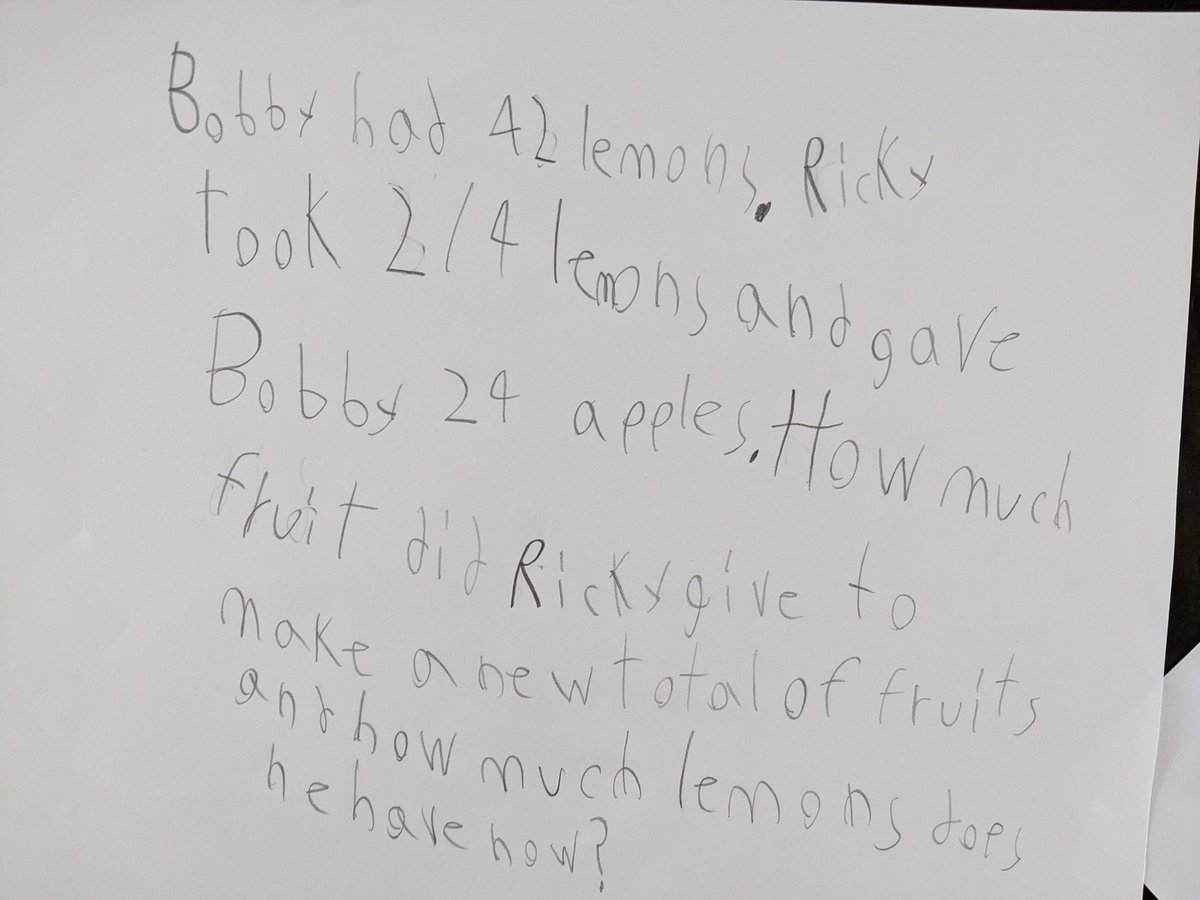 Bobby had 42 lemons. Ricky
took 2/4 lemons and gave
Bobby 24 apples. How much
fruit did Ricky give to
make a new total of fruits
and how much lemons does
he have now?